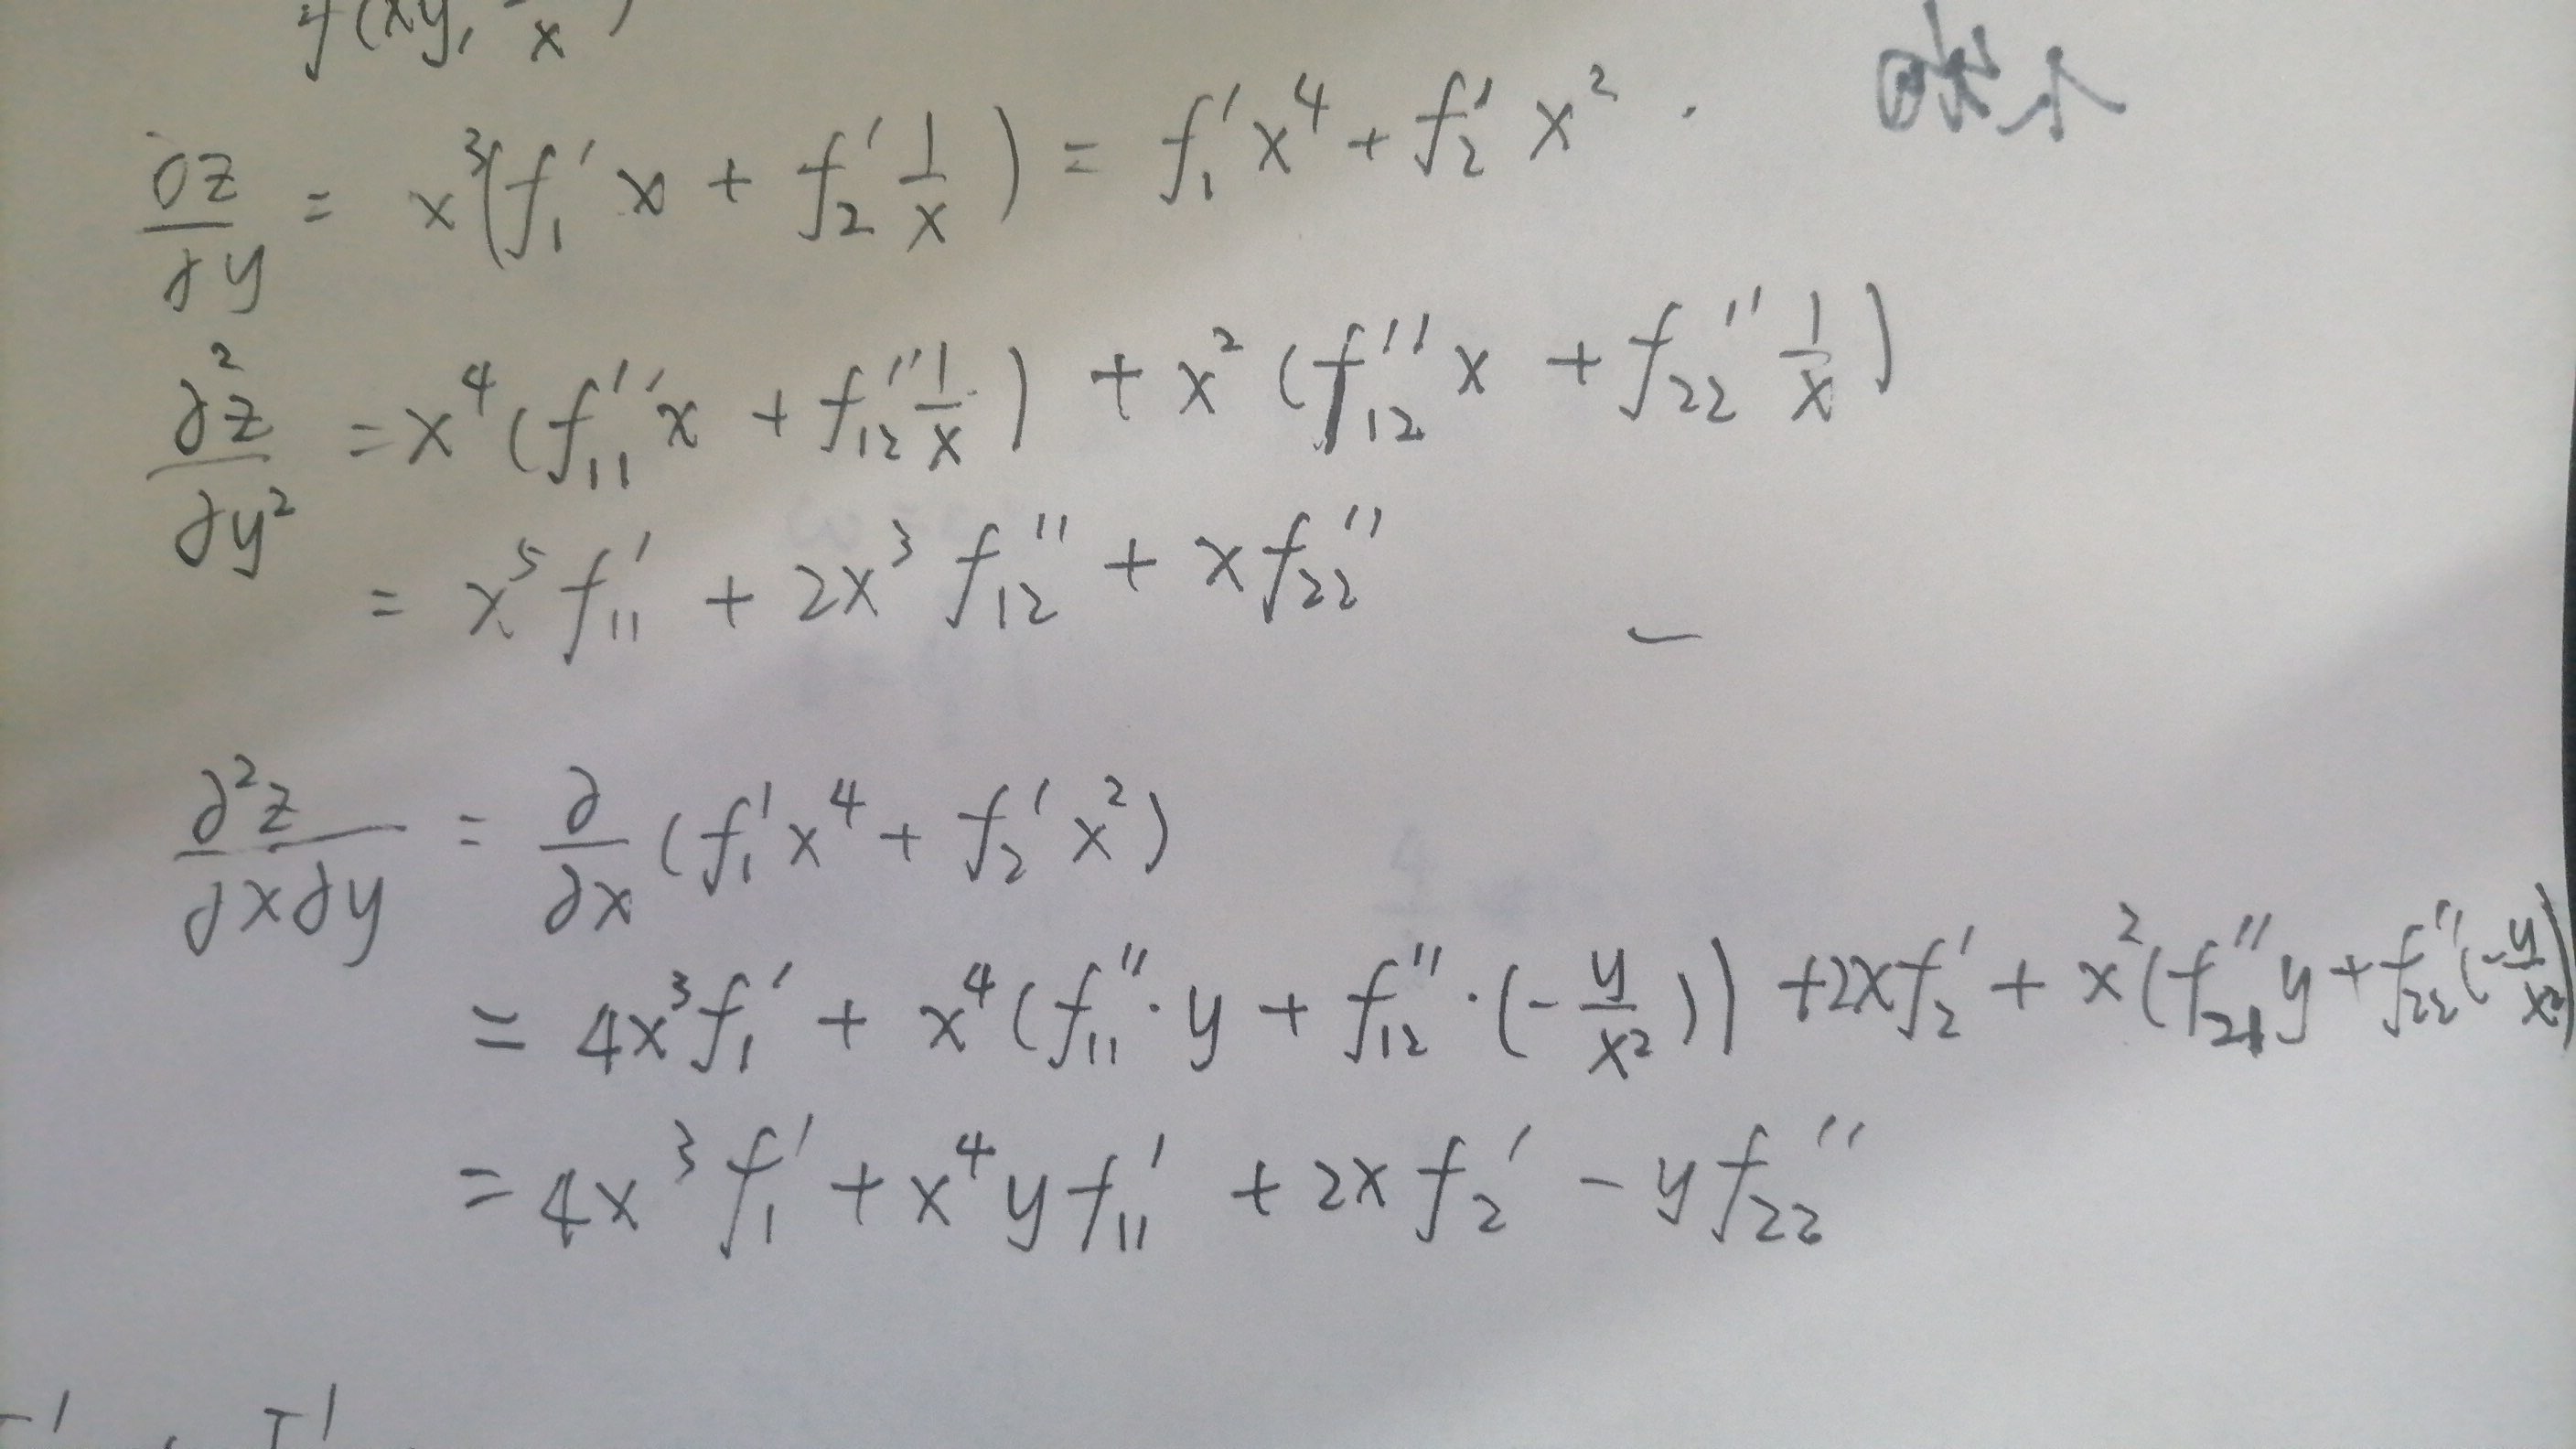 f(xy, x)
∂z/∂y = x³(f₁′x + f₂′ 1/x) = f₁′x⁴ + f₂′x².
∂²z/∂y² = x⁴(f₁₁″x + f₁₂″ 1/x) + x²(f₁₂″x + f₂₂″ 1/x)
= x⁵f₁₁′ + 2x³f₁₂″ + xf₂₂″
∂²z/∂x∂y = ∂/∂x (f₁′x⁴ + f₂′x²)
= 4x³f₁′ + x⁴(f₁₁″·y + f₁₂″·(-y/x²)) + 2xf₂′ + x²(f₂₁″y + f₂₂″(-y/x²)
= 4x³f₁′ + x⁴yf₁₁′ + 2xf₂′ - yf₂₂″